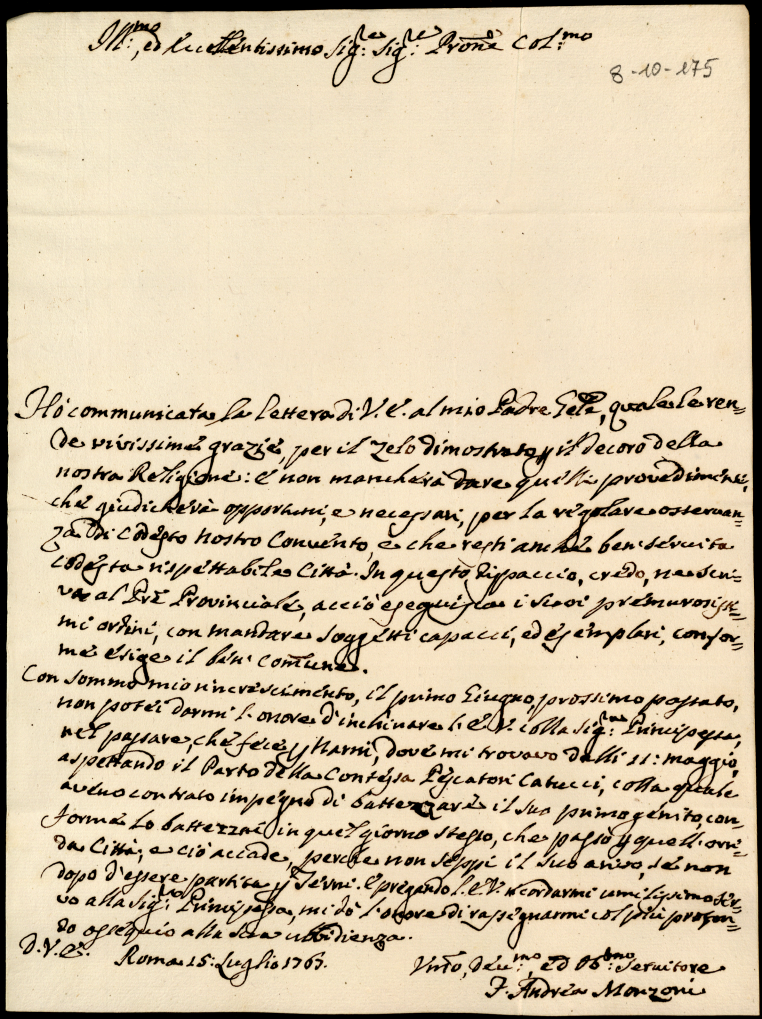 Ill:mo, ed Eccellentissimo Sig:re Sig:re Prōne Col:mo
8-10-175
Hò communicata la lettera di V. E. al mio Padre Gēle, quale le ren=
de vivissime grazie, per il zelo dimostrato p il decoro della
nostra Religione: e non mancherà dare quelli provedimenti,
che giudicherà opportuni, e necessari, per la regolare osservan=
za di codesto nostro Convento, e che resti anche ben servita
codesta rispettabile Città. In questo dispaccio, credo, ne scri=
va al Pre Provinciale, acciò eseguisca i suoi premurosiss=
mi ordini, con mandare soggetti capaci, ed esemplari, confor=
me esige il ben comūne.
Con sommo mio rincrescimento, il primo Giugno, prossimo passato,
non potei darmi l'onore d'inchinare l'E. V. colla Sig:ra Principessa,
nel passare, che fece p Narni, dove mi trovavo dalli 11: maggio,
aspettando il Parto della Contessa Pescatori Catucci, colla quale
avevo contratto impegno di battezzare il suo primogenito, con=
forme lo battezzai in quel giorno stesso, che passò p quell'orri=
da Città; e ciò accade, perche non seppi il suo arivo, se non
dopo d'essere partita p Terni. E pregando l'E. V. ricordarmi umilissimo ser=
vo alla Sig:ra Principessa, mi dò l'onore di rassegnarmi col più profon=
do ossequio alla sua ubbidienza.
D. V. E.
Roma 15: Luglio 1767.
Umo, Dev:mo, ed Ob:mo Servitore
F. Andrea Monzoni